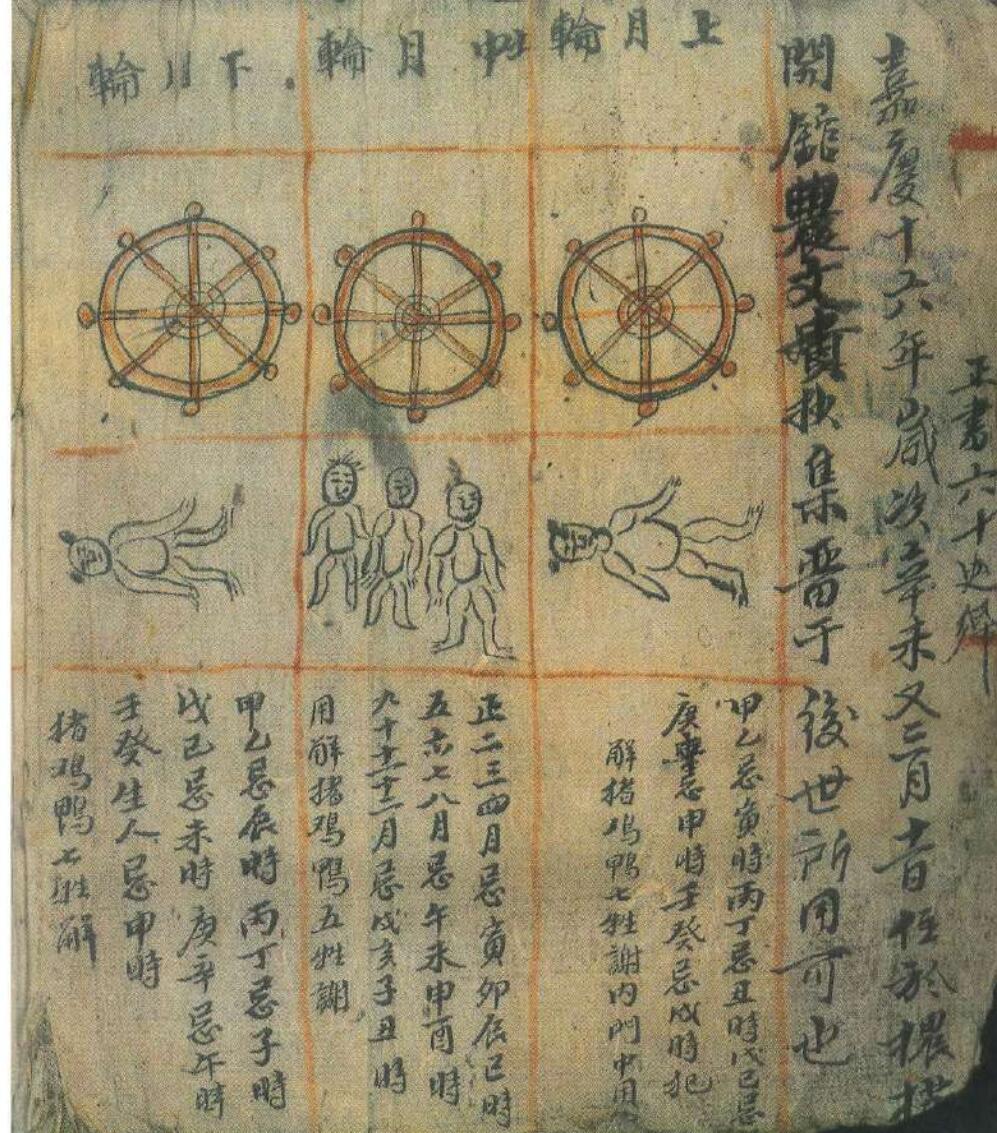 正書六十
嘉慶十六年歲次辛未又二月十一日 於
開館農文貴抄集畨于後世所用可也
上月輪
中月輪
下月輪
甲乙忌寅時丙丁忌丑時戊己忌
庚辛忌甲時壬癸忌戌時犯
解猪鸡鴨七牲謝内門中用
正二三四月忌寅卯辰巳時
五六七八月忌午未申酉時
九十十一十二月忌戌亥子丑時
用解猪鸡鴨五牲謝
甲乙忌辰時丙丁忌子時
戊己忌未時庚辛忌午時
壬癸生人忌申時
猪鸡鴨七牲解